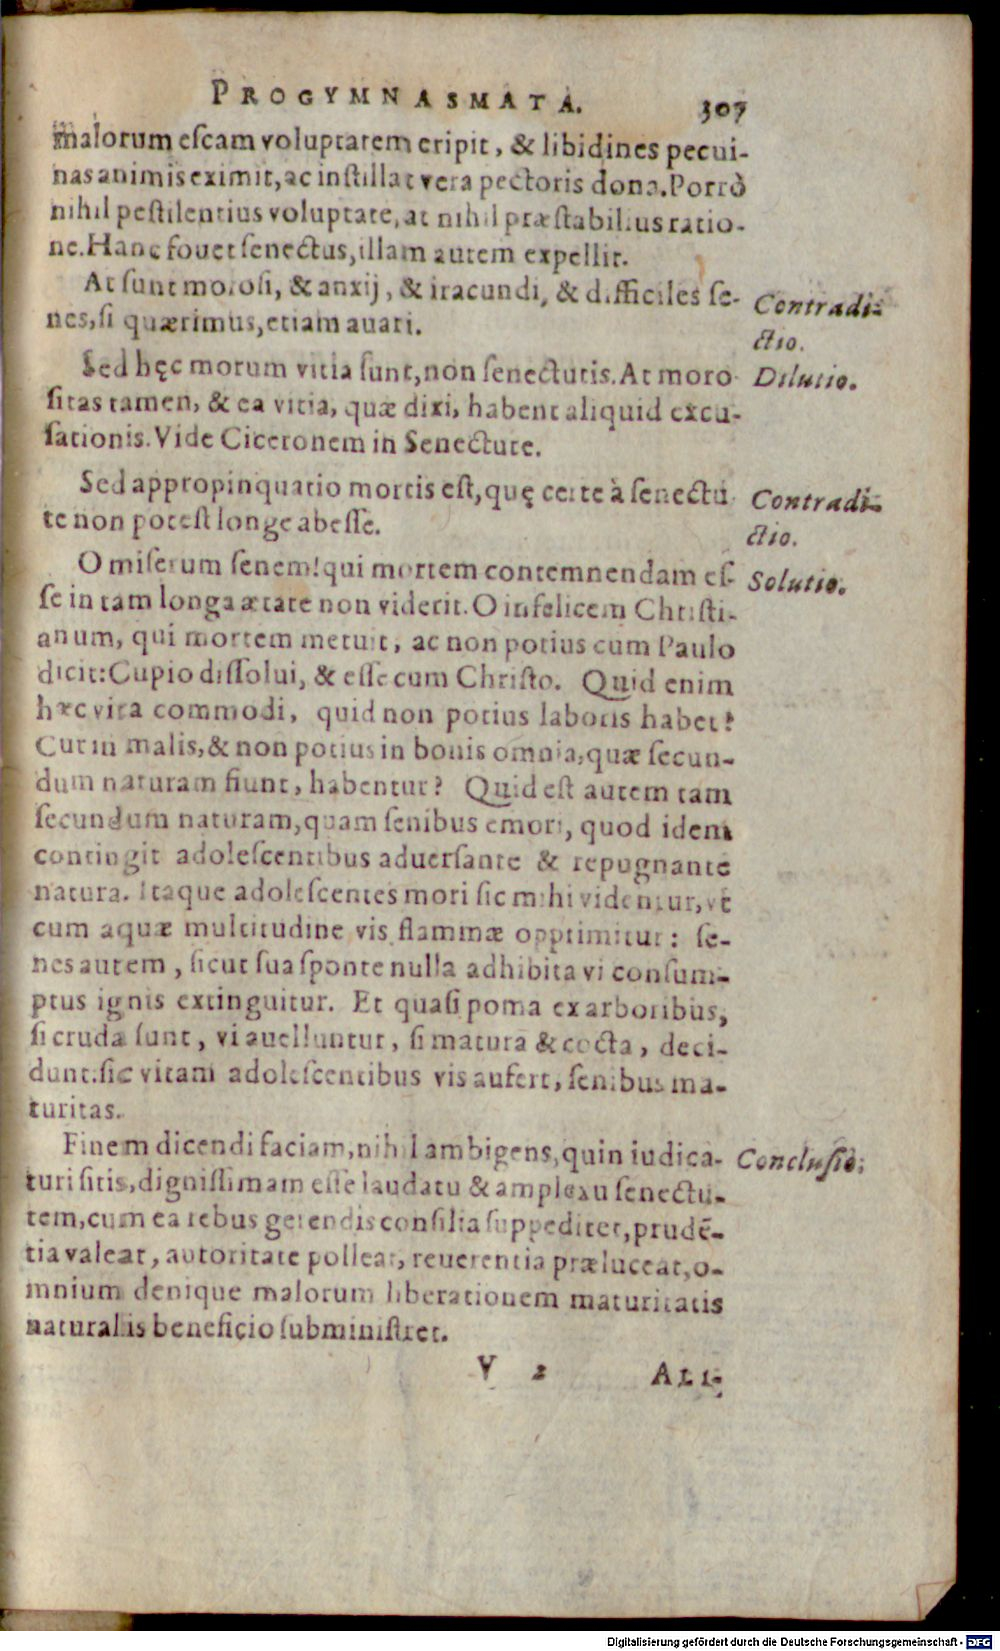 PROGYMNASMATA. 307
malorum escam voluptatem eripit, & libidines pecui-
nas animis eximit, ac instillat vera pectoris dona. Porrò
nihil pestilentius voluptate, at nihil præstabilius ratio-
ne. Hanc fouet senectus, illam autem expellit.
At sunt morosi, & anxij, & iracundi, & difficiles se-
nes, si quærimus, etiam auari.
Contradi-
ctio.
Sed hęc morum vitia sunt, non senectutis. At moro
sitas tamen, & ea vitia, quæ dixi, habent aliquid excu-
sationis. Vide Ciceronem in Senectute.
Dilutio.
Sed appropinquatio mortis est, quę certe à senectu
te non potest longe abesse.
Contradi-
ctio.
O miserum senem! qui mortem contemnendam es-
se in tam longa ætate non viderit. O infelicem Christi-
anum, qui mortem metuit, ac non potius cum Paulo
dicit: Cupio dissolui, & esse cum Christo. Quid enim
hæc vita commodi, quid non potius laboris habet?
Cur in malis, & non potius in bonis omnia, quæ secun-
dum naturam fiunt, habentur? Quid est autem tam
secundum naturam, quam senibus emori, quod idem
contingit adolescentibus aduersante & repugnante
natura. Itaque adolescentes mori sic mihi videntur, vt
cum aquæ multitudine vis flammæ opprimitur: se-
nes autem, sicut sua sponte nulla adhibita vi consum-
ptus ignis extinguitur. Et quasi poma ex arboribus,
si cruda sunt, vi auelluntur, si matura & cocta, deci-
dunt: sic vitam adolescentibus vis aufert, senibus ma-
turitas.
Solutio.
Finem dicendi faciam, nihil ambigens, quin iudica-
turi sitis, dignissimam esse laudatu & amplexu senectu-
tem, cum ea rebus gerendis consilia suppeditet, prudē-
tia valeat, autoritate polleat, reuerentia præluceat, o-
mnium denique malorum liberationem maturitatis
naturalis beneficio subministret.
Conclusio.
V 2 ALI-
Digitalisierung gefördert durch die Deutsche Forschungsgemeinschaft - DFG